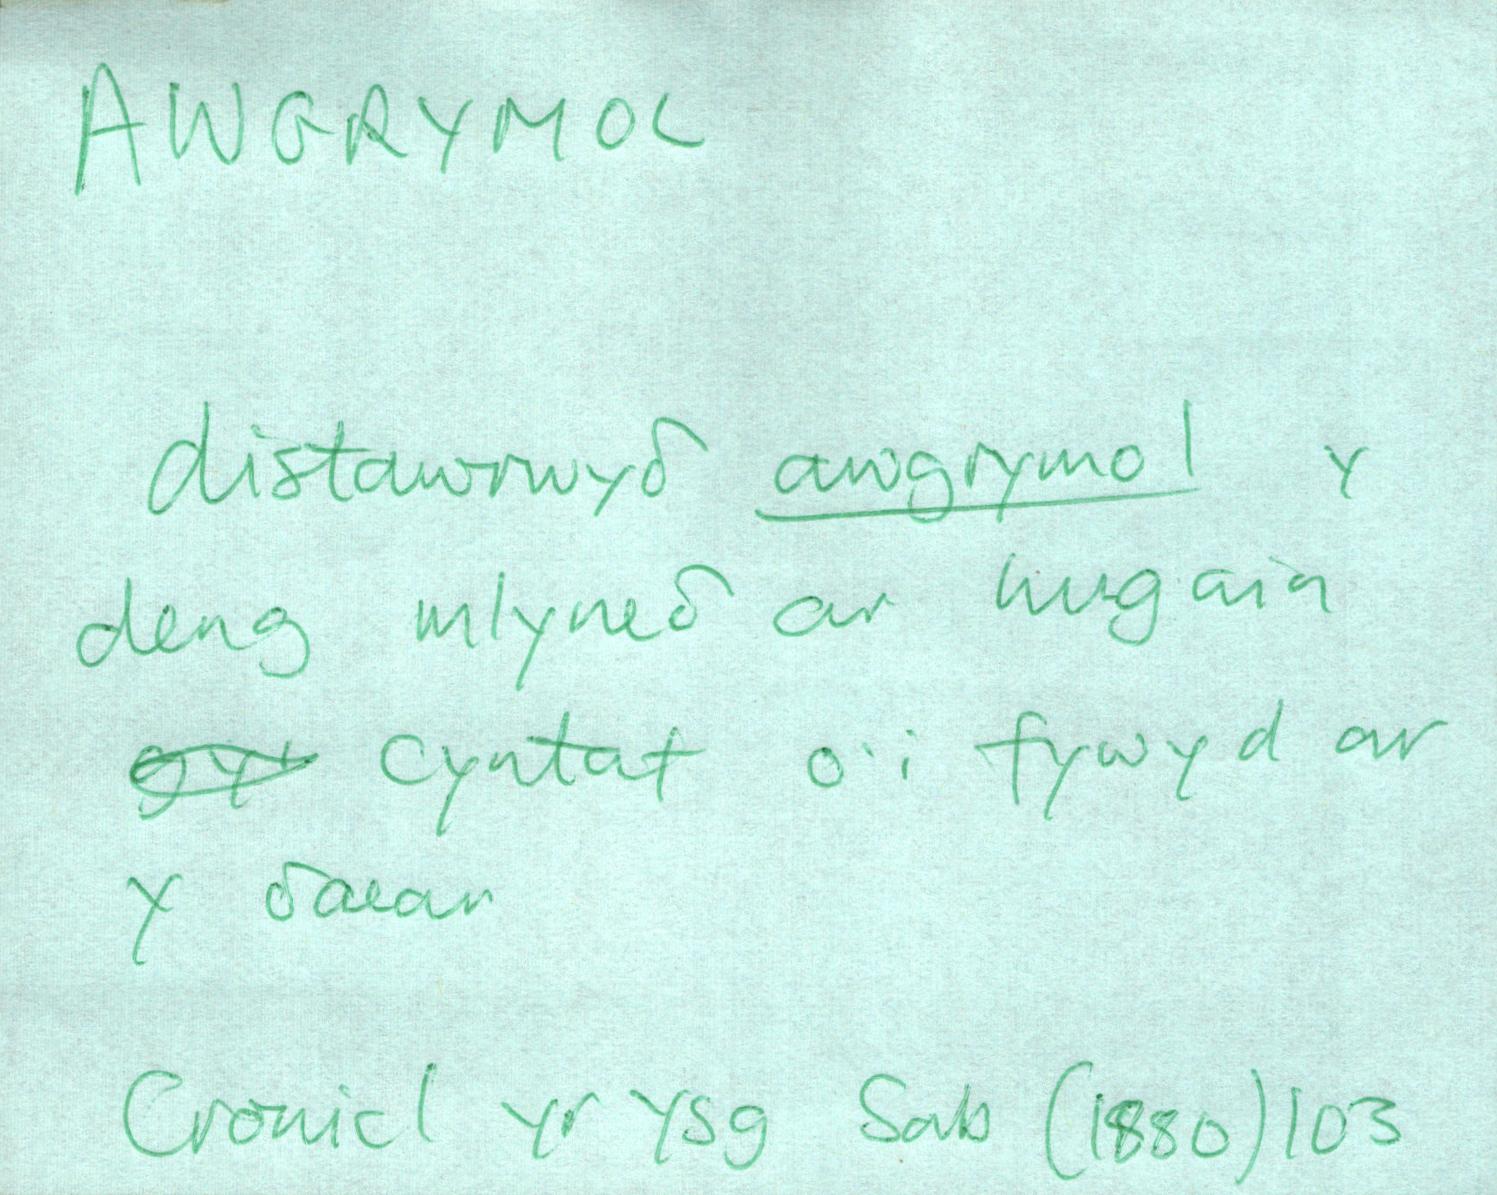 AWGRYMOL
distawrwyδ awgrymol y
deng mlyneδ ar hugain
cyntaf o'i fywyd ar
y δaear
Cronicl yr Ysg Sab (1880) 103